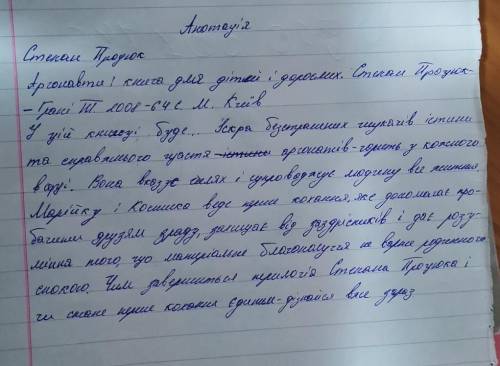 Анотація
Степан Процюк
Аргонавти: книга для дітей і дорослих. Степан Процюк-
- Грані Т. 2008 - 64 с М. Київ
У цій книзі буде.. Іскра безстрашних шукачів істини
та справжнього щастя істини аргонавтів - горить у кожного
в душі. Вона вказує шлях і супроводжує людину все життя.
Марійку і Костика веде перше кохання, яке допомагає про-
бачити друзям зраду, захищає від заздрісників і дає розу-
міння того, що матеріальне благополуччя не варте родинного
спокою. Чим завершиться трилогія Степана Процюка і
чи стане перше кохання єдиним - дізнайся вже зараз